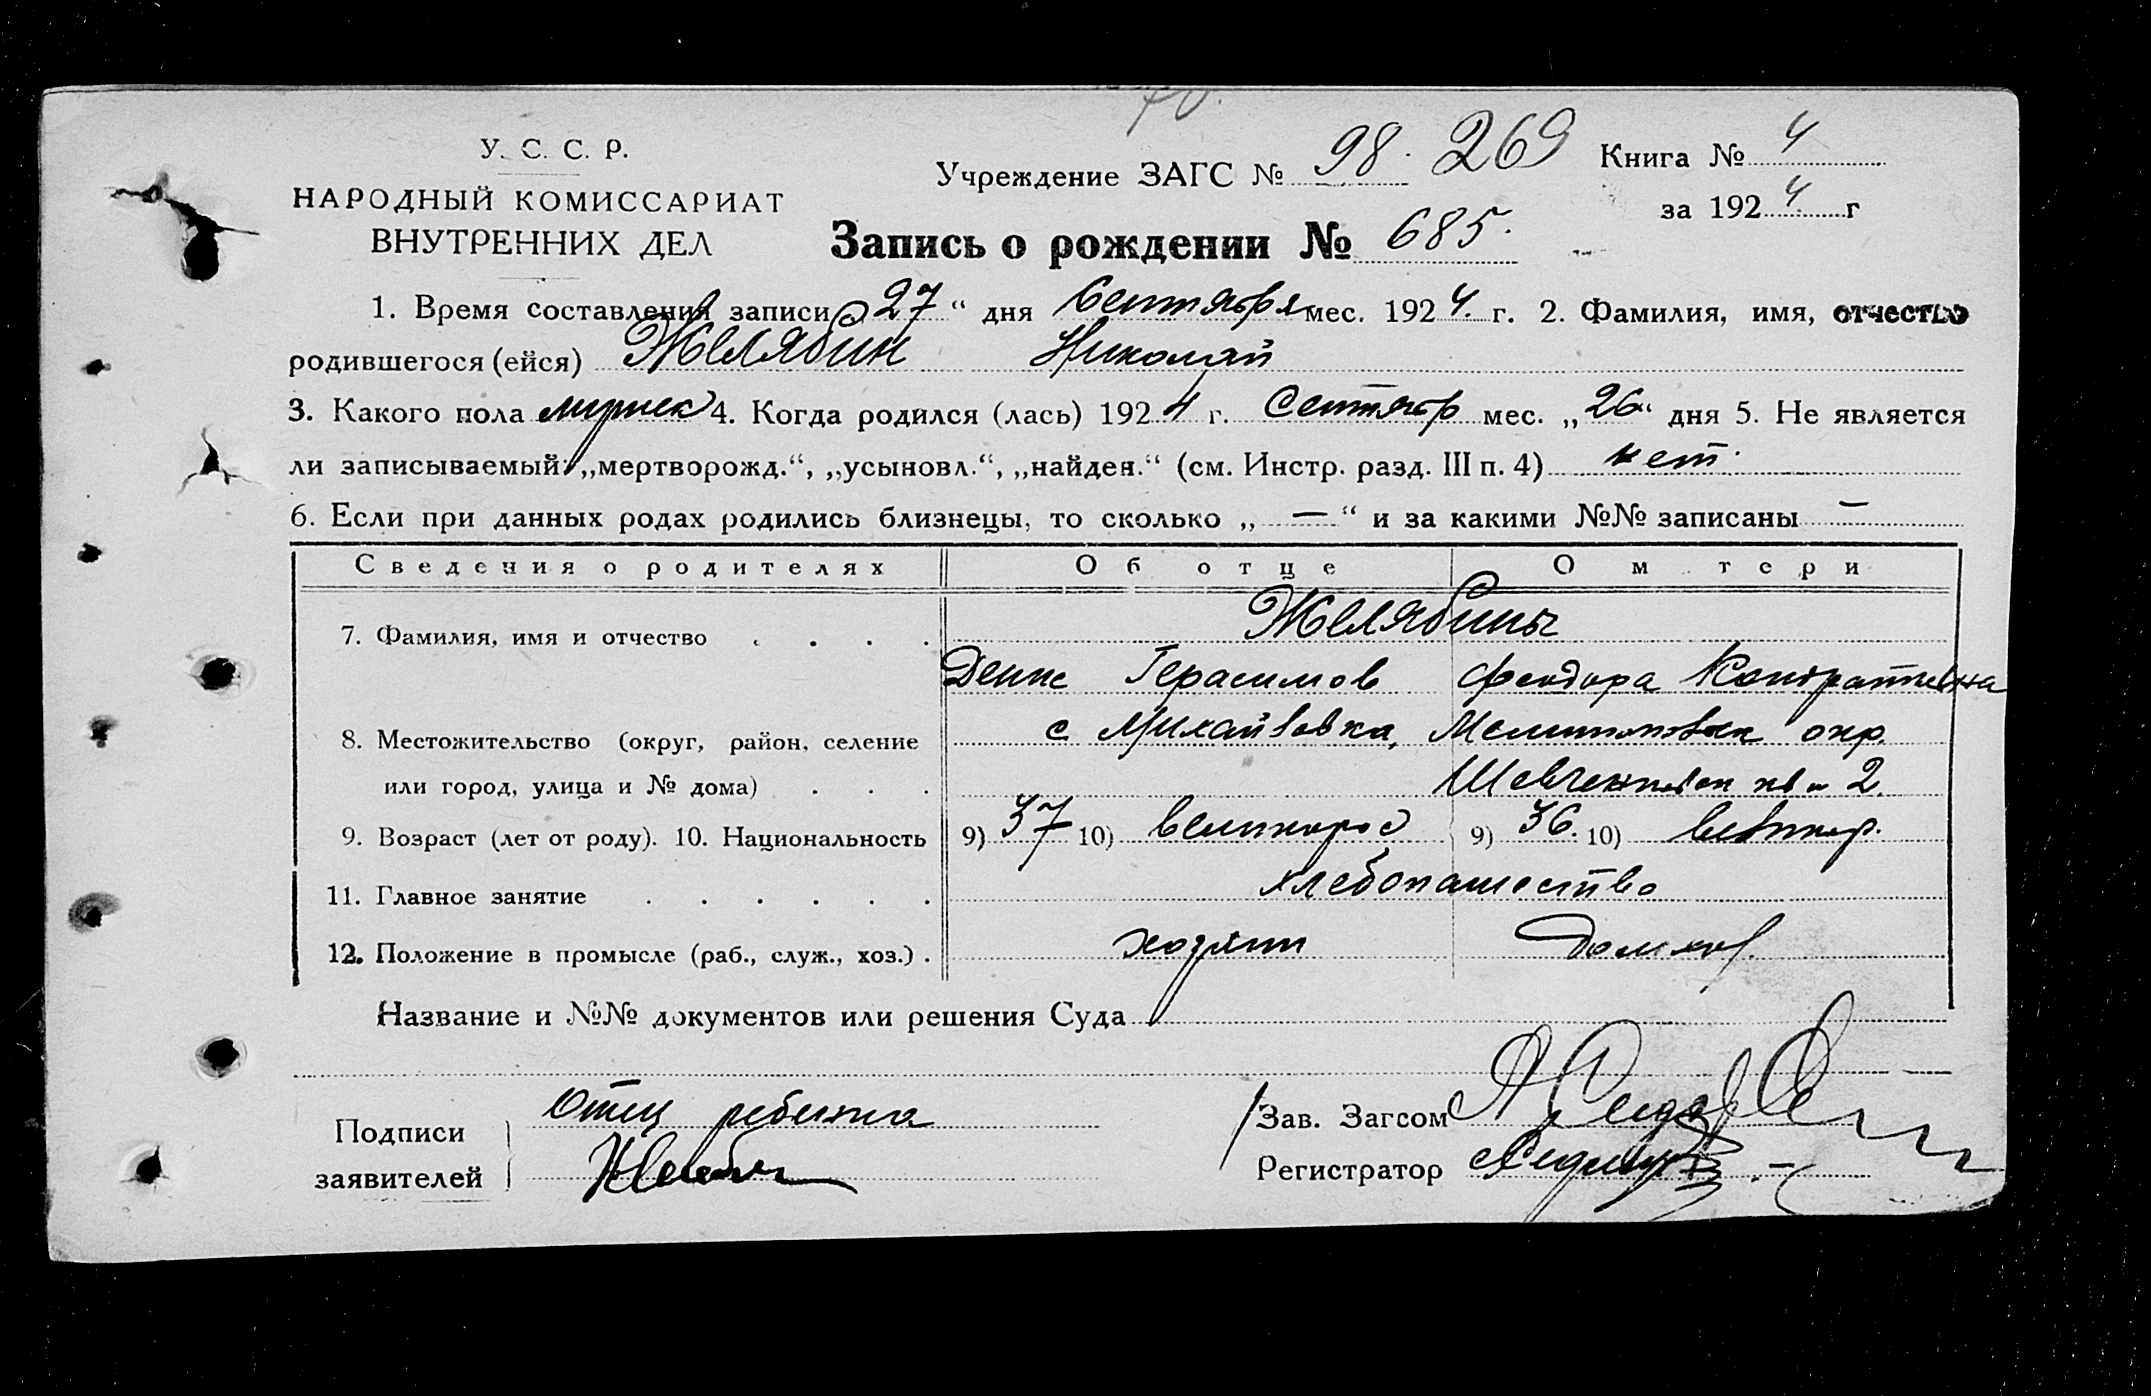 У. С. С. Р.
НАРОДНЫЙ КОМИССАРИАТ
ВНУТРЕННИХ ДЕЛ
Учреждение ЗАГС № 98. 269 Книга № 4
за 1924 г
Запись о рождении № 685.
1. Время составления записи „27“ дня Сентября мес. 1924. г. 2. Фамилия, имя, отчество
родившегося (ейся) Желябин Николай
3. Какого пола мужск 4. Когда родился (лась) 1924 г. Сентябр мес. „26“ дня 5. Не является
ли записываемый: „мертворожд.“, „усыновл.“, „найден.“ (см. Инстр. разд. III п. 4) нет.
6. Если при данных родах родились близнецы, то сколько „ — “ и за какими №№ записаны —
Сведения о родителях Об отце О м тери
7. Фамилия, имя и отчество . . . . Желябины
Денис Герасимов Феодора Кондратьевна
8. Местожительство (округ, район, селение с Михайловка, Мелитопольск окр.
или город, улица и № дома) . . . 2.
9. Возраст (лет от роду). 10. Национальность 9) 37 10) великорос 9) 36. 10) великор.
11. Главное занятие . . . . . . хлебопашество
12. Положение в промысле (раб., служ., хоз.) . хозяин домхоз.
Название и №№ документов или решения Суда
Подписи Отец ребенка
заявителей
Зав. Загсом
Регистратор